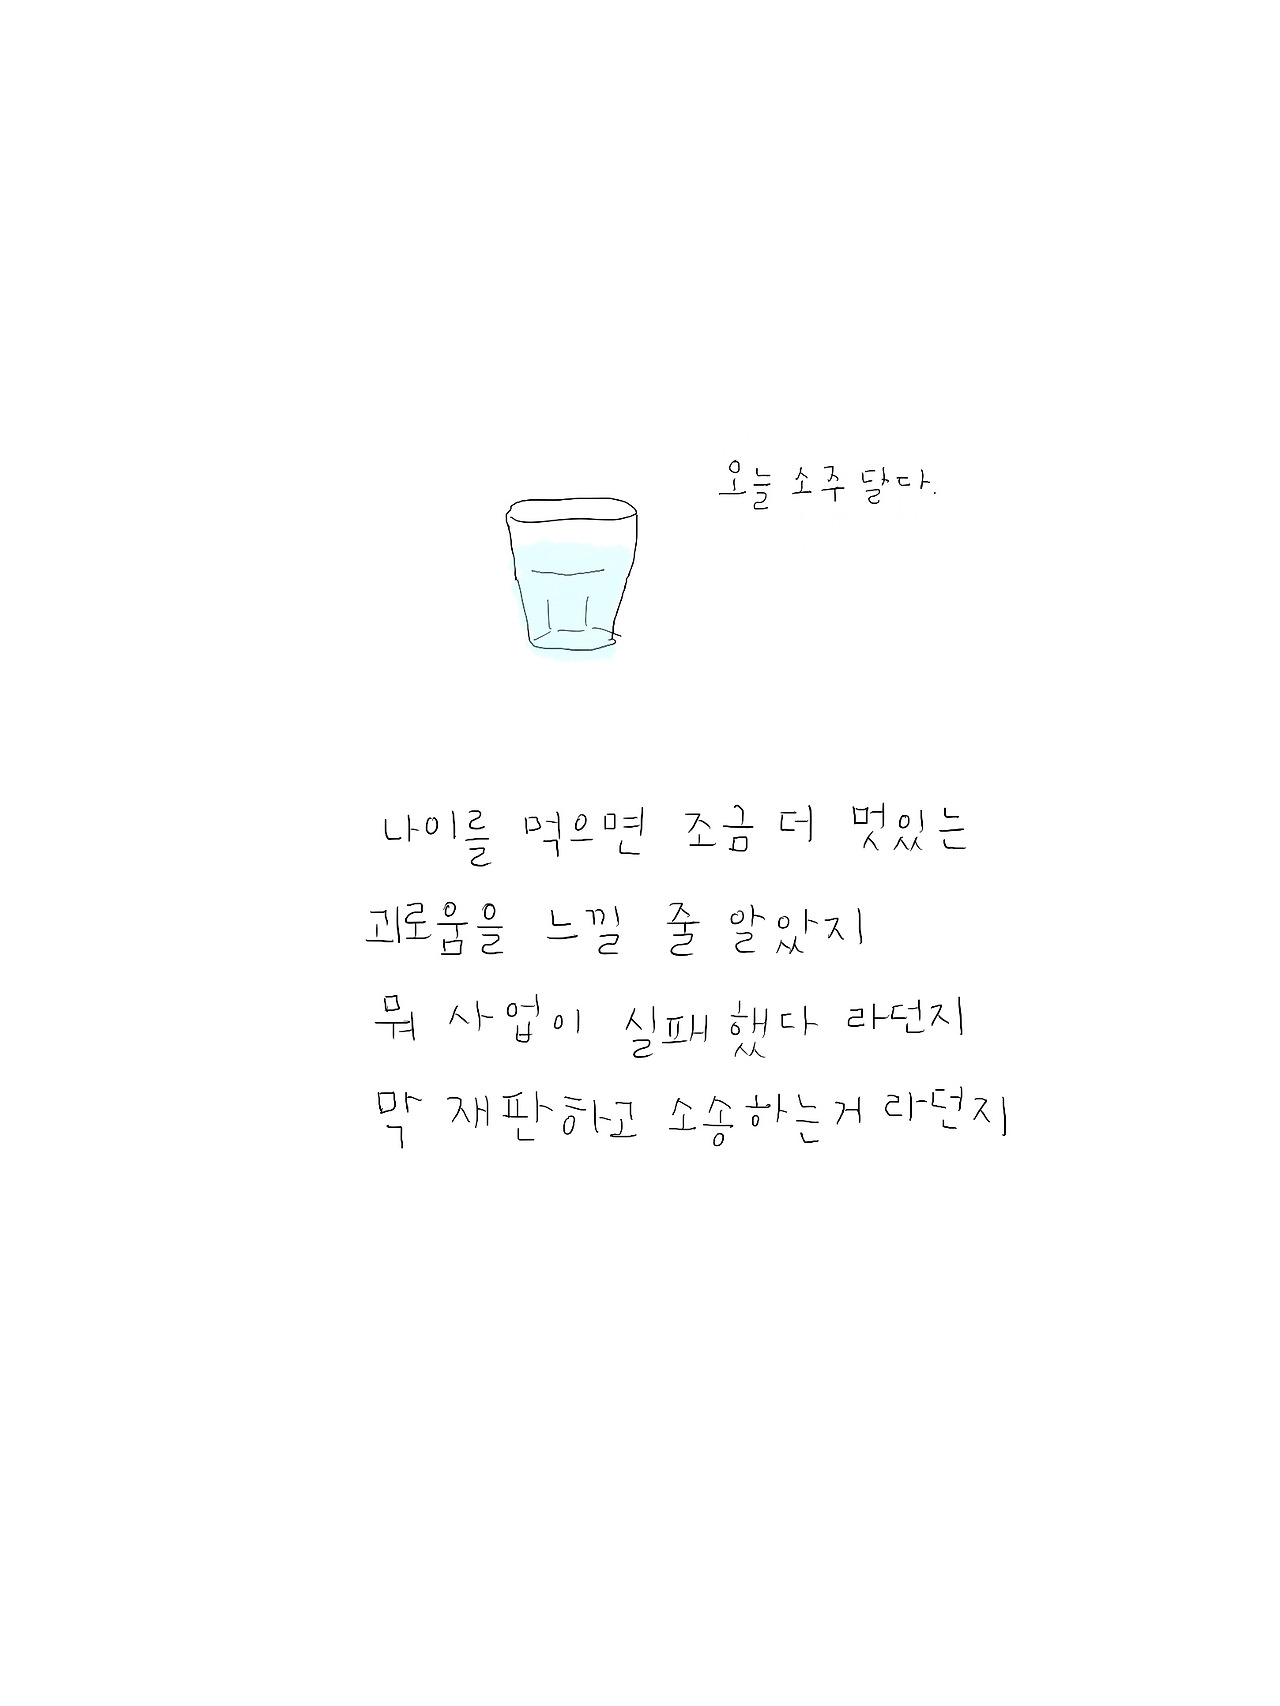 오늘 소주 달다.
나이를 먹으면 조금 더 멋있는
괴로움을 느낄 줄 알았지
뭐 사업이 실패했다 라던지
막 재판하고 소송하는거 라던지